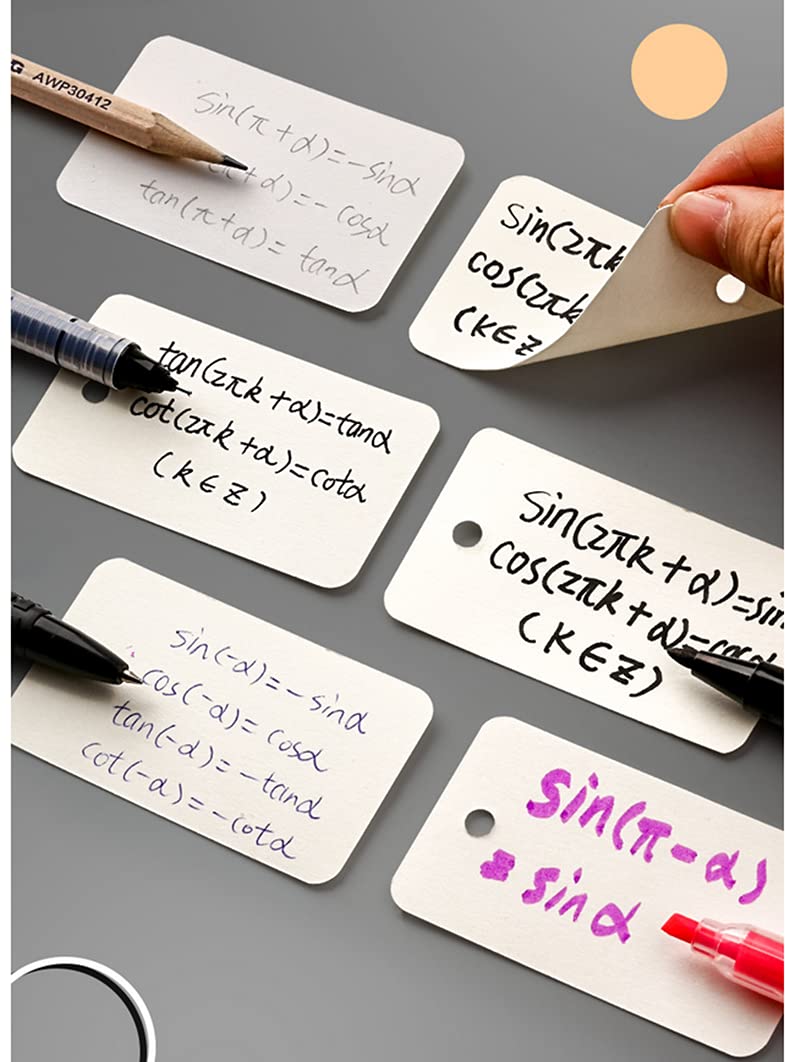 G AWP30412
sin(π+α)=-sinα
(π+α)=-cosα
tan(π+α)=tanα
sin(2πk
cos(2πk
(k∈z
tan(2πk+α)=tanα
cot(2πk+α)=cotα
(k∈z)
sin(2πk+α)=sin
cos(2πk+α)=cosα
(k∈z)
sin(-α)=-sinα
cos(-α)=cosα
tan(-α)=-tanα
cot(-α)=-cotα
sin(π-α)
=sinα